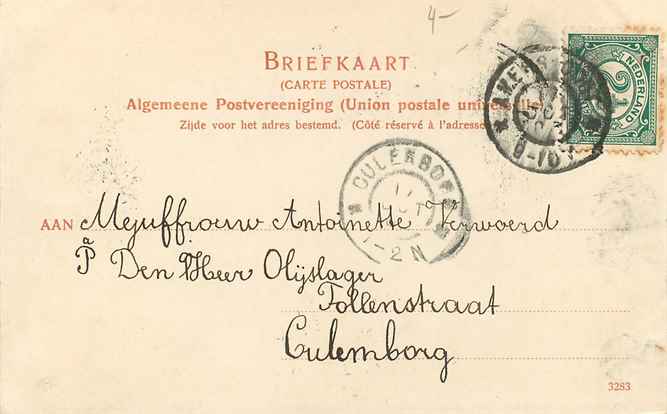 4-
BRIEFKAART
(CARTE POSTALE)
Algemeene Postvereeniging (Union postale universelle)
Zijde voor het adres bestemd. (Côté réservé à l'adresse
NEDERLAND
2½
8-10V
CULEMBORG
17
OCT
1-2N
AAN Mejuffrouw Antoinette Verwoerd
Pa Den Heer Olijslager
Tollenstraat
Culemborg
3283